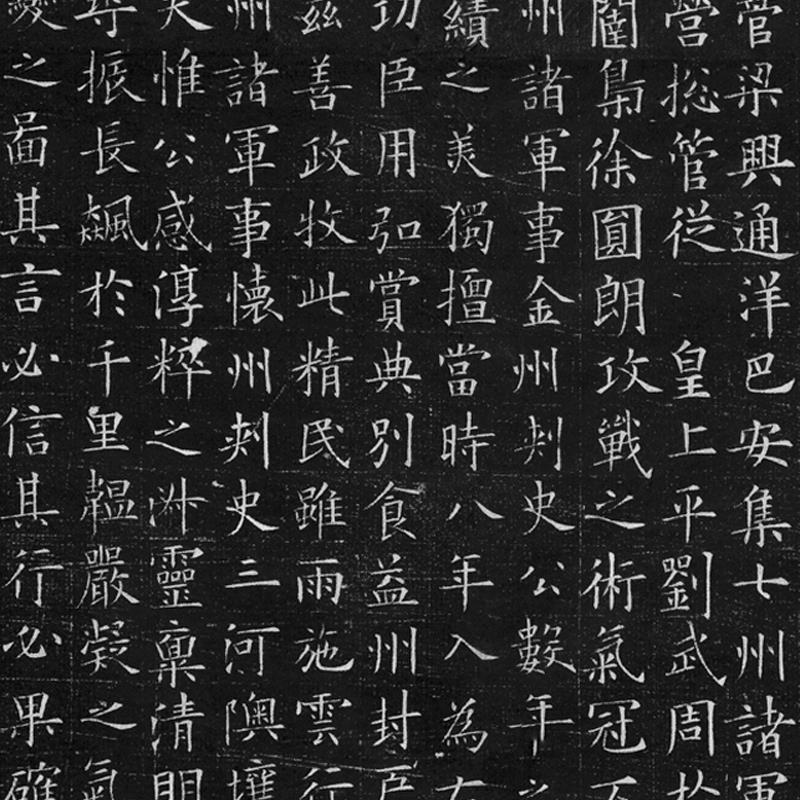 管梁興通洋巴安集七州諸軍
營捴管從皇上平劉武周於
闈梟徐圓朗攻戰之術氣冠不
州諸軍事金州刺史公數年之
績之美獨擅當時八年入為右
功臣用弘賞典別食益州封戶
茲善政牧此精民雖雨施雲行
州諸軍事懷州刺史三河隩壤
天惟公感淳粹之淋靈稟清明
尋振長飆於千里韞嚴凝之氣
變之啚其言必信其行必果確